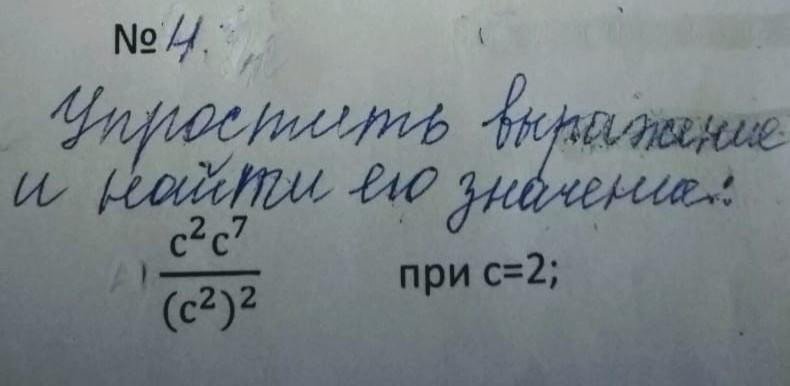 №4.
Упростить выражение
и найти его значение:
c²c⁷
(c²)²
при c=2;